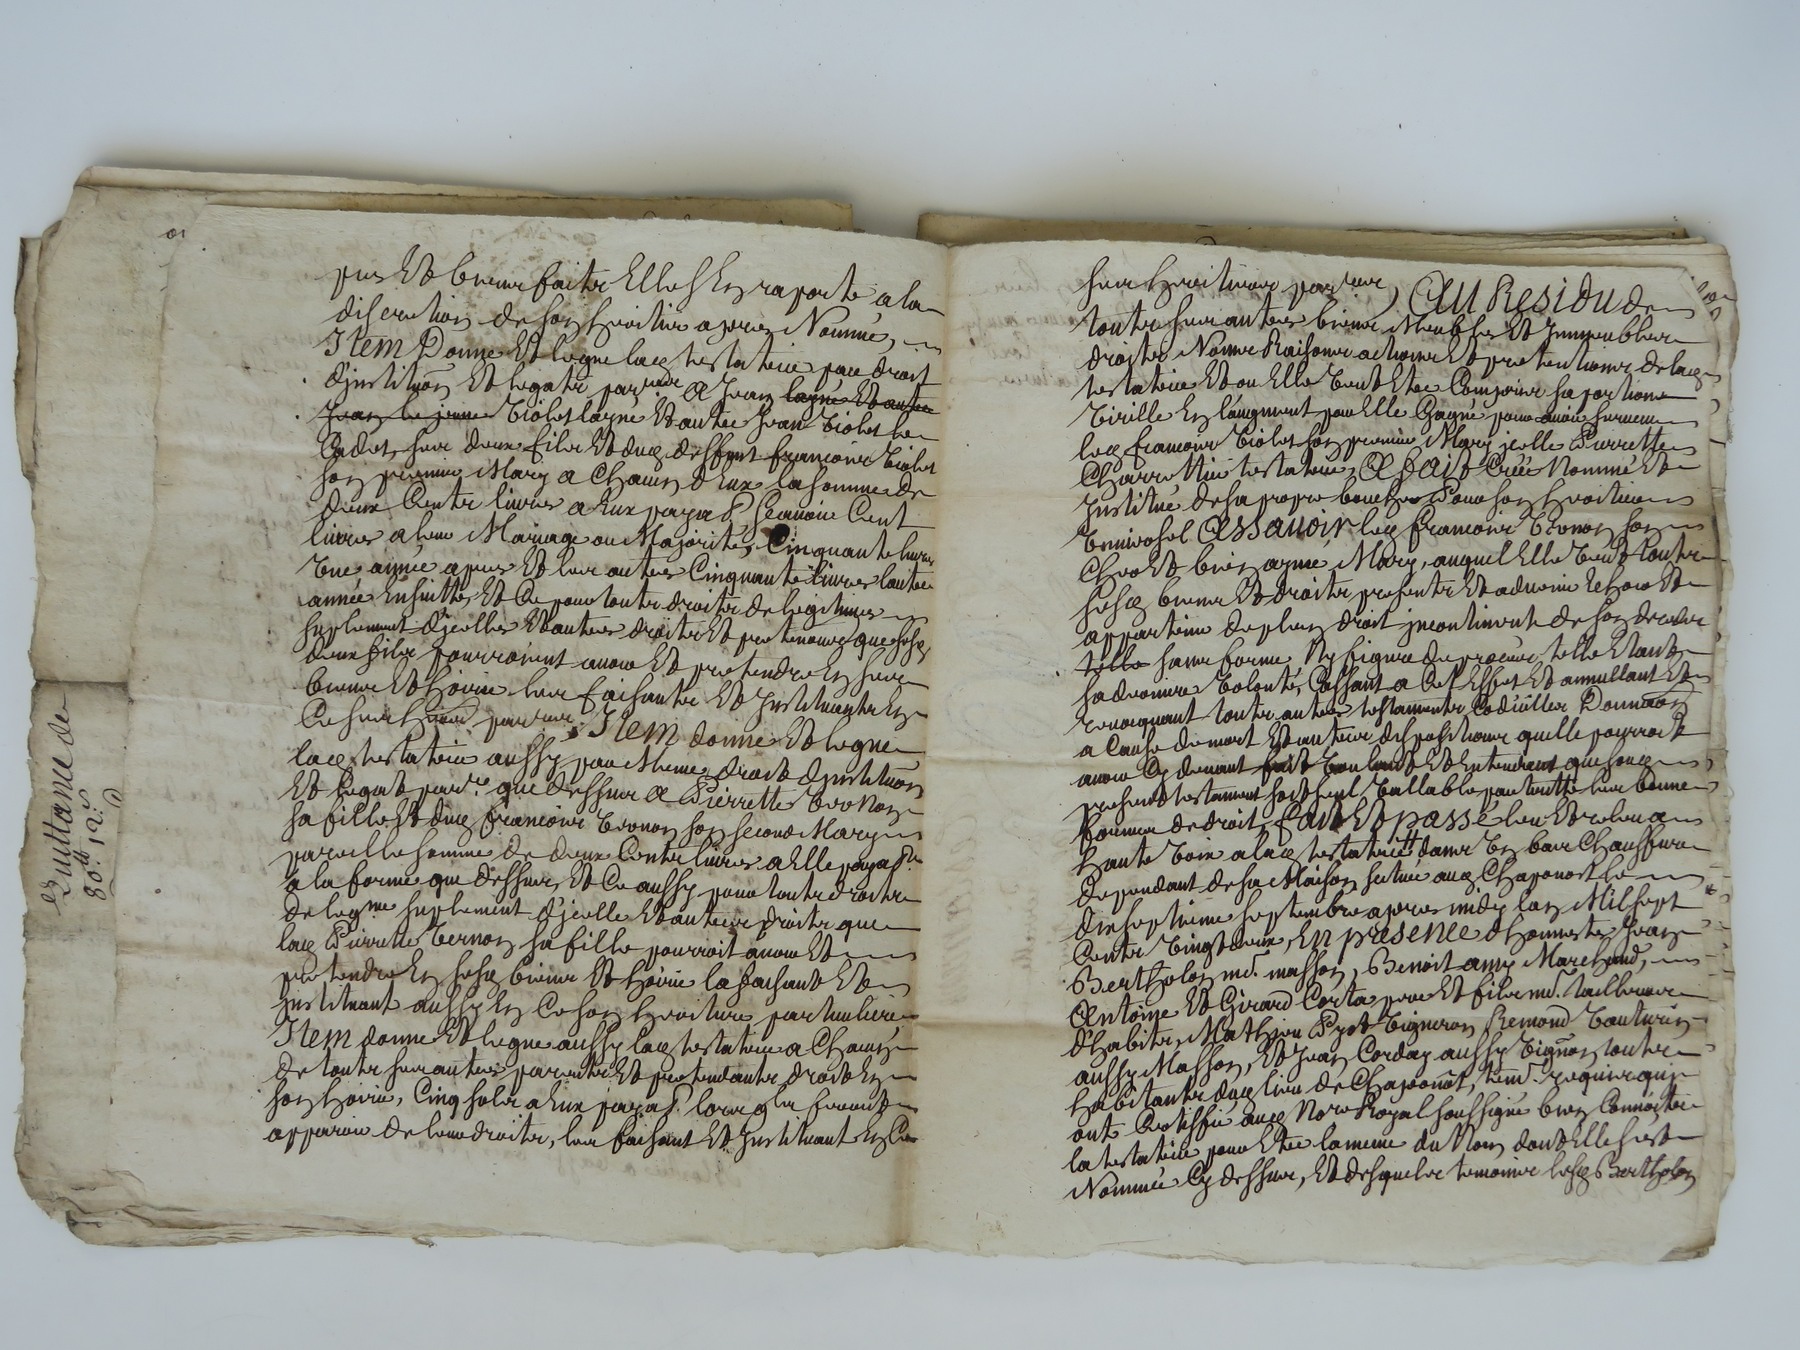 pies Et bienfaits Elle s'En raporte a la
discretion de son heritier apres Nommé,
Item Donne Et legue lad testatrice par droit
d'jnstituon Et legats par re A Jean layné Et autre
Jean le jeune Violet layné Et autre Jean Violet le
Cadet, ses deux fils Et dud deffunt francois Violet
son premier Mary a Chacun d'Eux la somme de
deux Cents livres a Eux payab scavoir Cent
livres a leur Mariage ou Majorité, Cinquante livres
Une année apres Et les autres Cinquante livres lautre
année Ensuitte, Et Ce pour touts droits de legitimes
suplement d'jcelles Et autres droits Et pretentions que sesd
deux fils pourroient avoir Et pretendre En ses
biens Et hoirie les faisants Et Jnstituants En
Ce ses hers par ers, Item donne Et legue
lad testatrice aussy par Meme droit d'jnstituon
Et legat par re que dessus A Pierrette Vernon
sa fille Et dud francois Vernon son second Mary
pareille somme de deux Cents livres a Elle payable
a la forme que dessus, Et Ce aussy pour touts droits
de legme suplement d'jcelle Et autres droits que
lad Pierrette Vernon sa fille pourroit avoir Et
pretendre En sesd biens Et hoirie la faisant Et
jnstituant aussy En Ce son heritiere particuliere
Item donne Et legue aussy lad testatrice a Chacun
de touts ses autres parents Et pretendants droit En
son hoirie, Cinq sols a Eux payab. lors qls feront
apparoir de leurs droits, les faisant Et Jnstituant En Ce
Quittance de
80tt 12s
ses heritiers par ers, AU Residu de
touts ses autres biens Meubles Et Jmmeubles
droits Noms Raisons actions Et pretentions de lad
testatrice Et ou Elle veut Etre Comprise sa portion
Virille En l'augment par Elle Gagné pour avoir survecu
led francois Violet son premier Mary jcelle Pierrette
Charretier testatrice, A fait Créé Nommé Et
Jnstitué de sa propre bouche Pour son heritier
Universel Assavoir led francois Vernon son
Cher Et bien aymé Mary, auquel Elle Veut touts
sesd biens Et droits presents Et advenir Echoir Et
appartenir de plein droit jncontinent de son deces
telle sans forme Ny figure de proces, telle Etant
sa derniere Volonté, Cassant a Cet Effet Et annullant Et
revoquant touts autres testaments Codicilles Donnaon
a Cause de mort Et autres dispositions quelle pourroit
avoir Cy devant fait Voulant Et Entendant que son
present testament soit seul Vallable par toutte les bonnes
formes de droit, fait Et passé leu Et releu a
haute Voix a lad testatrice dans Un bas Chauffure
dependant de sa Maison scitue aud Chaponost le
dixseptieme septembre apres midy lan Mil sept
Cents Vingt deux, En presence d'honnestes Jean
Bertholon md. masson, Benoit amy Marchand,
Antoine Et Girard Corta pere Et fils md. tailleurs
d'habits, Mathieu Pyot Vigneron, Remond Vauturin
aussy Masson, Et Jean Corday aussy Vigneron touts
habitants dud lieu de Chaponost, temd. requis qui
ont Certiffié aud Nore Royal soussigné bien Connoitre
la testatrice pour Etre la meme du Nom dont Elle s'est
Nommée Cy dessus, Et desquels temoins lesd Bertholon